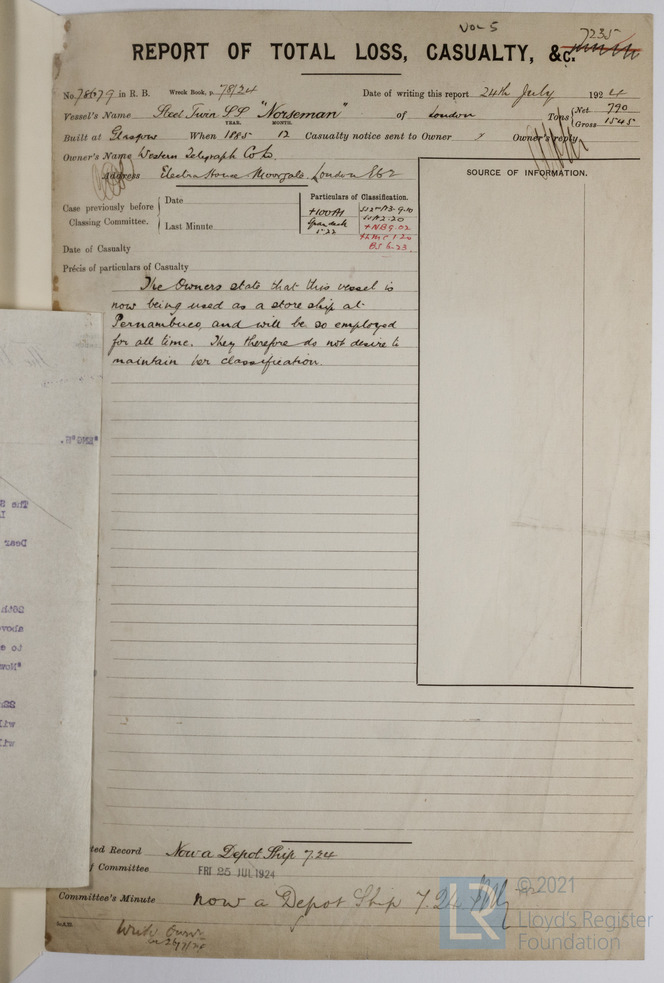 Vol 5
7235
REPORT OF TOTAL LOSS, CASUALTY, &c.
No. 78679 in R. B. Wreck Book, p. 78/24 Date of writing this report 24th July 1924
Vessel's Name Steel Twin SS "Norseman" of London Tons { Net 790
Gross 1545
YEAR. MONTH.
Built at Glasgow When 1885 12 Casualty notice sent to Owner Owner's reply
Owner's Name Western Telegraph Co Ld.
Address Electra House Moorgate London EC2
SOURCE OF INFORMATION.
Case previously before Classing Committee. { Date
Last Minute
Particulars of Classification.
+100A1
Spar deck
5.22
SS 2nd No 3. 9.10
SS No 2. 20
+NB 9.02
+LMC 1.20
BS 6.23
Date of Casualty
Précis of particulars of Casualty
The Owners state that this vessel is
now being used as a store ship at
Pernambuco, and will be so employed
for all time. They therefore do not desire to
maintain her classification.
ted Record Now a Depot Ship 7.24
f Committee FRI 25 JUL 1924
Committee's Minute now a Depot Ship 7.24
Write Owners
© 2021
LR
Lloyd's Register
Foundation